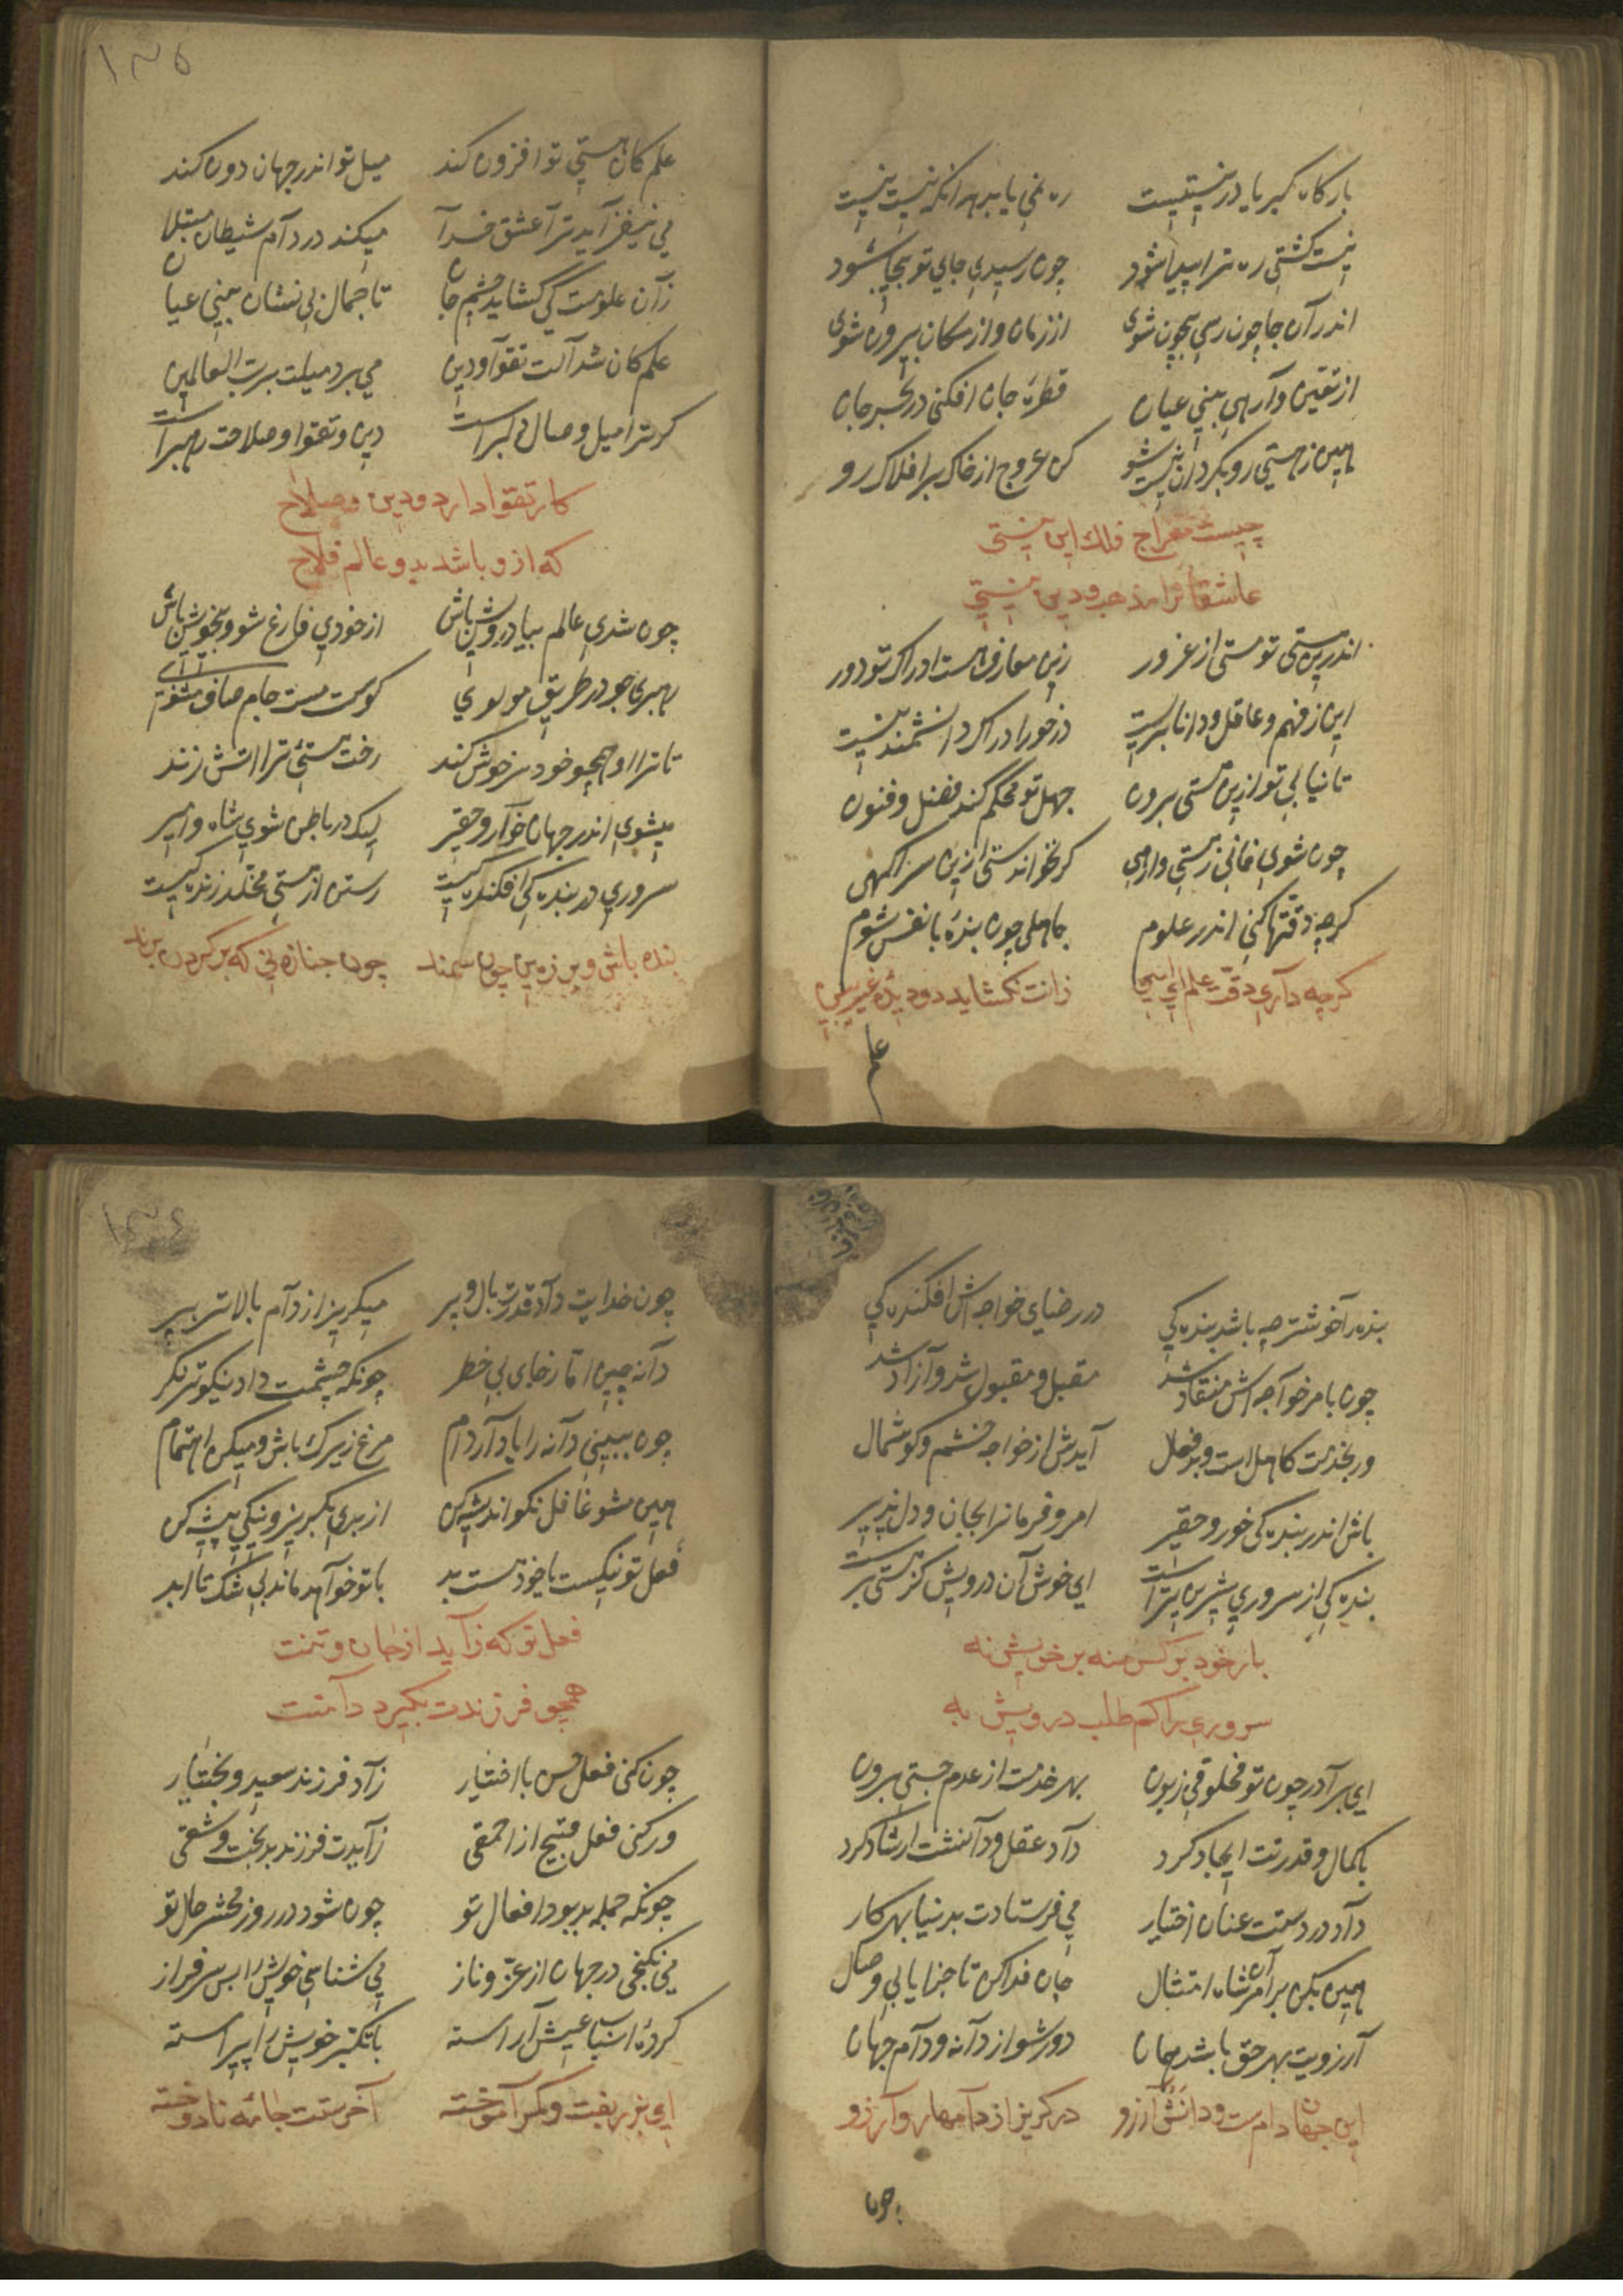 بارکاه کبریا در نیستیست ره نمی یابد بهر انکه نیست نیست
نیست کشتی ره ترا پیدا شود چون رسیدی جای تو بیجا شود
اندر آن جا چون رسی بیچون شوی از زمان و از مکان بیرون شوی
از تعین وارهی بینی عیان قطرۀ جان افکنی در بحر جان
هین ز هستی رو بکردان نیست شو کن عروج از خاک بر افلاک رو
چیست معراج فلك این نیستی
عاشقانرا مذهب و دین نیستی
اندرین هستی تو مستی از غرور زین معارف هست ادراک تو دور
این ز فهم و عاقل و دانا بریست درخور ادراک دانشمند نیست
تا نیایی تو ازین هستی برون جهل تو محکم کند فضل و فنون
چون شوی فانی ز هستی وارهی کر نخواندستی ازین سر اکهی
کرچه دقتها کنی اندر علوم جاهلی چون بندۀ با نفس شوم
کرچه داری دقت علم ای زانت نکشاید دو دیدۀ غیب بین
علم
۱۳۵
علم کان هستی تو افزون کند میل تو اندر جهان دون کند
می نیفزاید ترا عشق خدا میکند در دام شیطان مبتلا
زان علومت کی کشاید چشم جان تا جمال بی نشان بینی عیان
علم کان شد آلت تقوا و دین می برد میلت برب العالمین
کر ترا میل وصال دلبر است دین و تقوا و صلاحت رهبر است
کار تقوا دارد و دین و صلاح
که ازو باشد بدو عالم فلاح
چون شدی عالم بیا درویش باش از خودی فارغ شو و بیخویش باش
رهبری جو در طریق مولوی کوست مست جام صاف مثنوی
تا ترا او همچو خود سرخوش کند رخت هستی ترا اتش زند
میشوی اندر جهان خوار و حقیر لیک در باطن شوی شاه و امیر
سروری در بنده کی افکنده کیست رستن از هستی مخلد زنده کیست
بنده باش و بر زمین چون سمند چون جنازه نی که بر کردن برند
بنده را خوشتر چه باشد بنده کی در رضای خواجه اش افکنده کی
چون بامر خواجه اش منقاد شد مقبل و مقبول شد و آزاد شد
ور بخدمت کاهل است و بد فعال آیدش از خواجه خشم و کوشمال
باش اندر بنده کی خور و حقیر امر و فرمانرا بجان و دل پذیر
بنده کی از سروری شیرین تر است ای خوش آن درویش کز هستی بر است
بار خود بر کس منه بر خویش نه
سروری را کم طلب درویش به
ای برادر چون تو مخلوقی زبون بهر خدمت از عدم جستی برون
با کمال و قدرتت ایجاد کرد داد عقل و دانشت ارشاد کرد
داد در دستت عنان اختیار می فرستادت بدنیا بهر کار
هین بکن بر امر آن شاه امتثال جان فدا کن تا جزا یابی وصال
آرزویت بهر حق باشد همان دور شو از دانه و دام جهان
این جهان دام ست و دانش آرزو در کریز از دامها رو آرزو
چون
۱۳٤
چون خدایت داد قدرت بال و پر میکریز از دام بالاتر بپر
دانه چین اما ز جای بی خطر چونکه چشمت داد نیکوتر نکر
چون ببینی دانه را یاد آر دام مرغ زیرك باش و میکن اهتمام
هین مشو غافل نکو اندیشه کن از بدی بکریز و نیکی پیشه کن
فعل تو نیکست یا خودست بد با تو خواهد ماند بی شک تا ابد
فعل تو که زاید از جان و تنت
همچو فرزندت بکیرد دامنت
چون کنی فعل حسن با اختیار زاد فرزند سعید و بختیار
ور کنی فعل قبیح از احمقی زایدت فرزند بدبخت و شقی
چونکه جمله بد بود افعال تو چون شود در روز محشر حال تو
می نکنجی در جهان از عز و ناز می شناسی خویش را بس سرفراز
کردۀ اسباب عیش آراسته با تکبر خویش را پیراسته
ای بزر بفت و کمر آموخته آخرستت جامۀ نادوخته